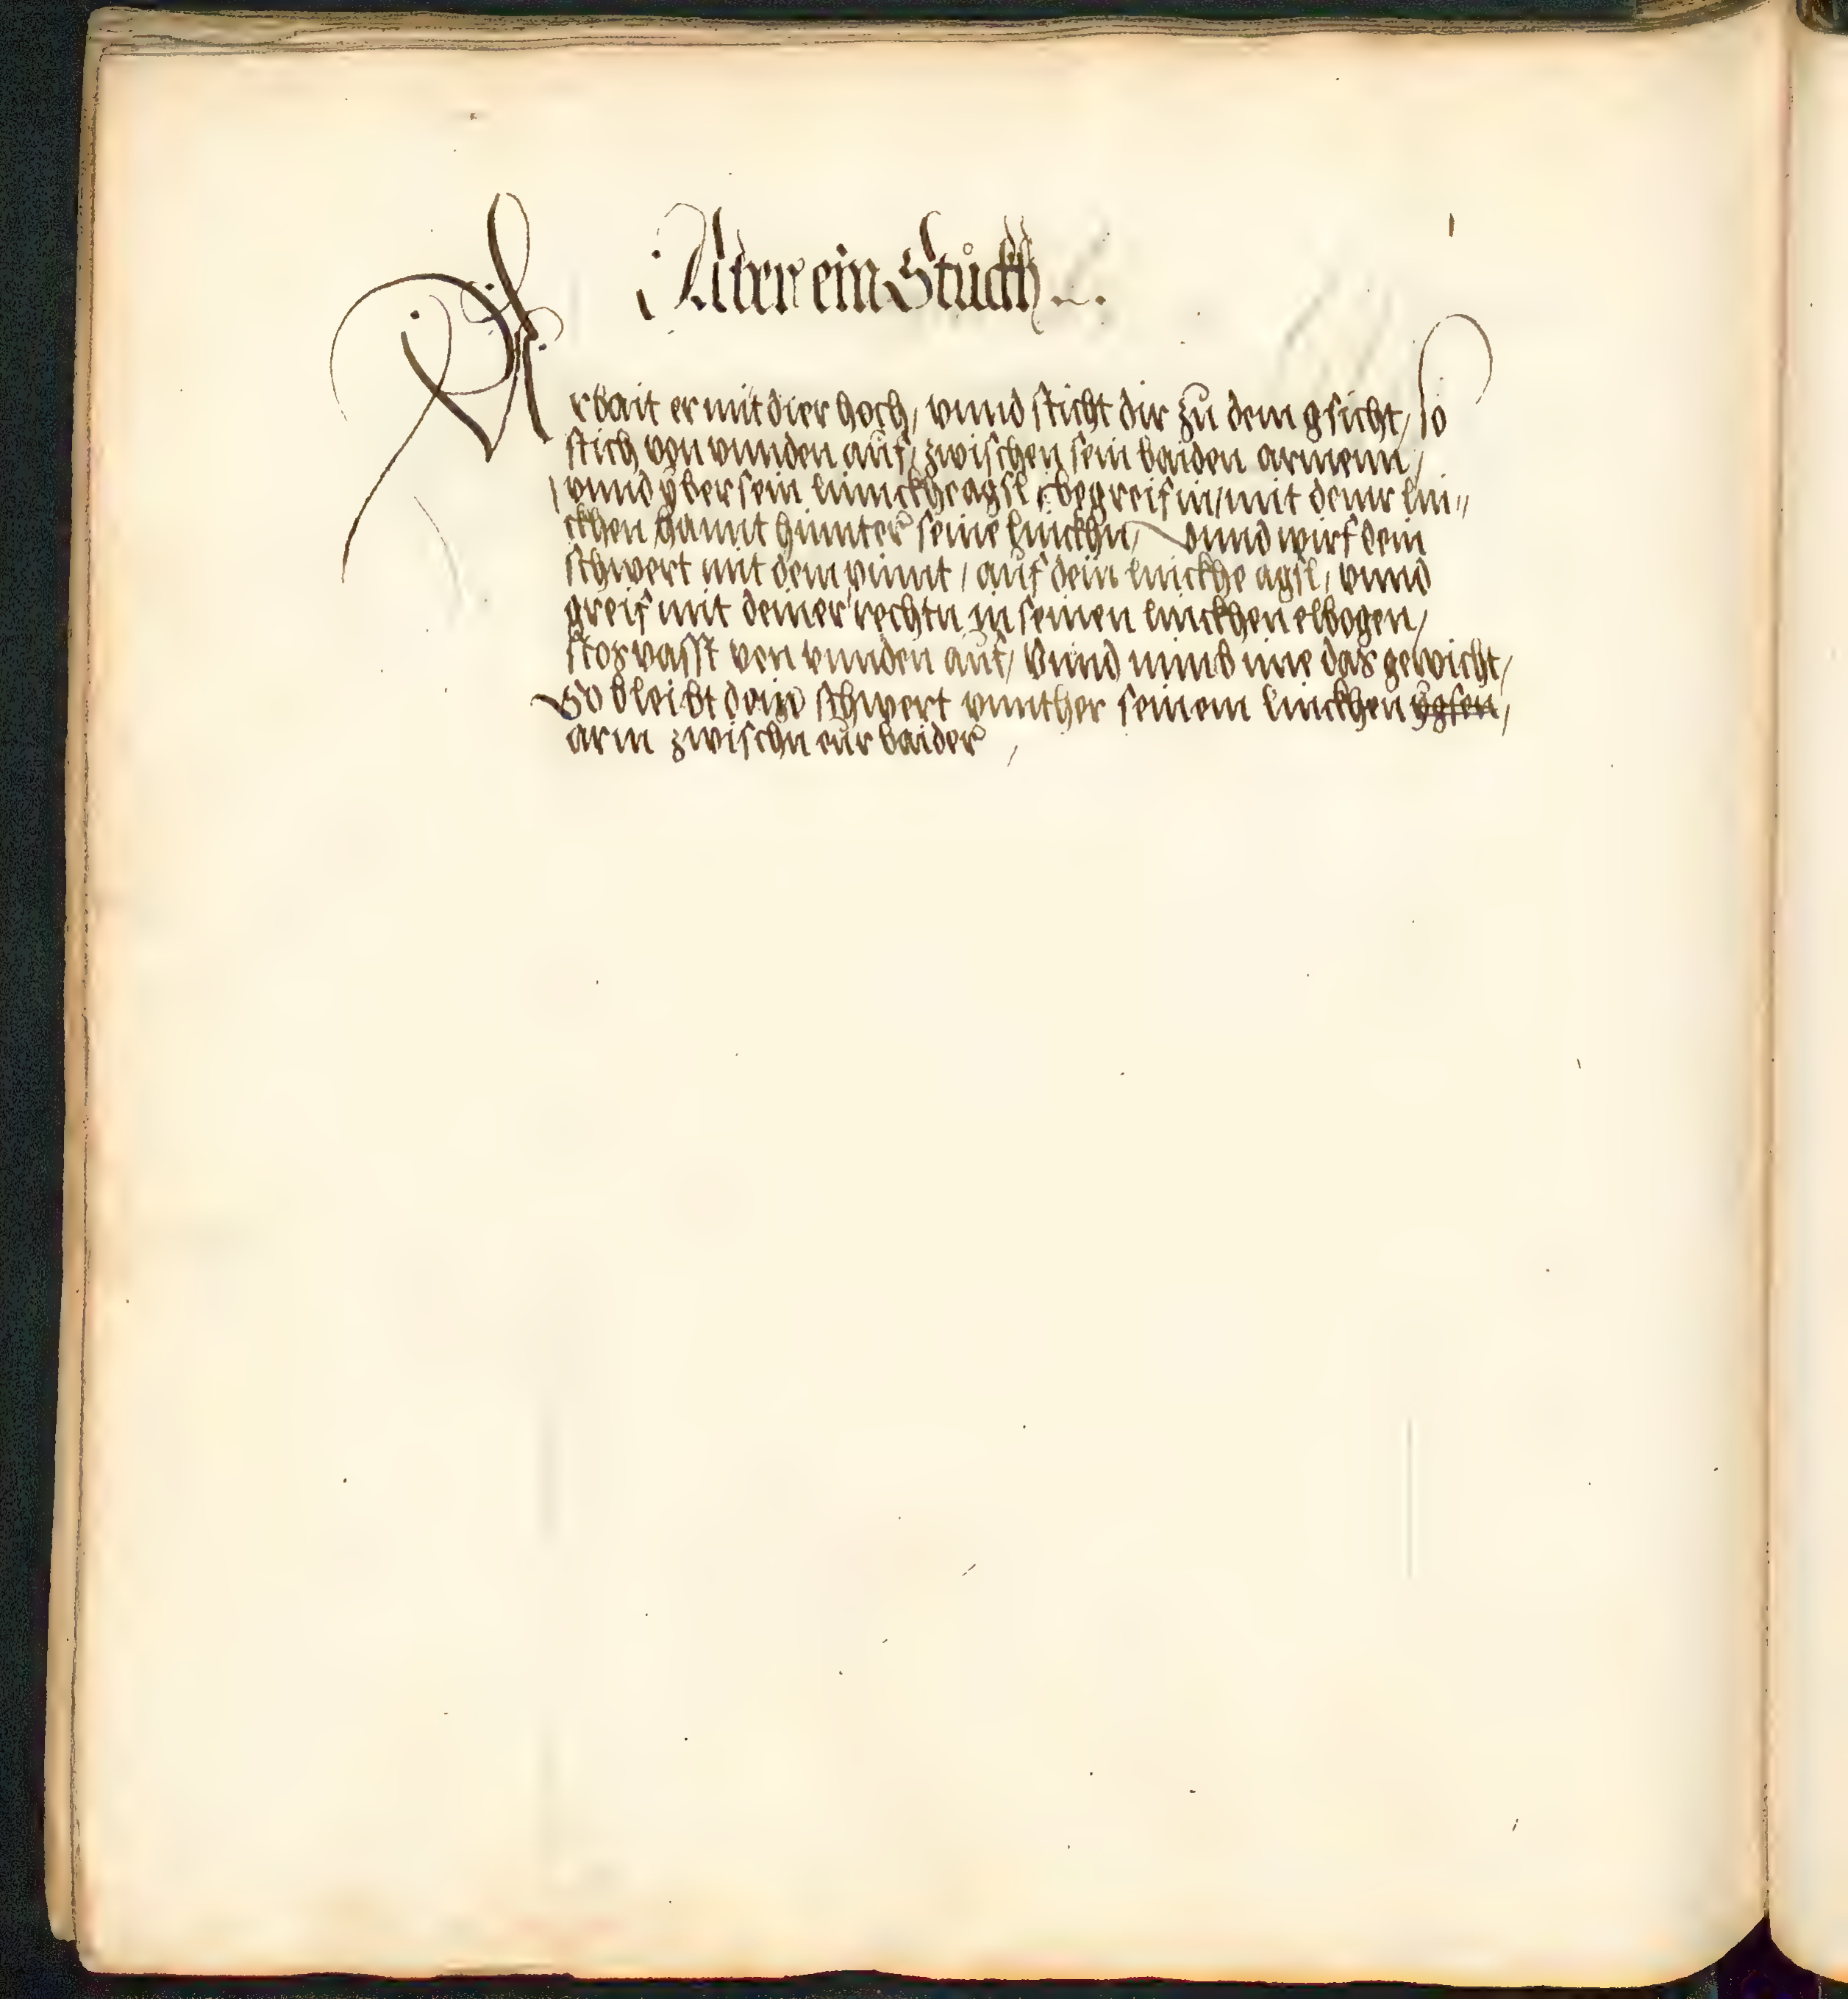 Aber ein Stuckh
Arbait er mit dier hoch, vnnd sticht dir zu dem gsicht, so
stich von vnnden auf, zwischen sein baiden armenn,
vnnd yber sein linnckhe agsl, begreif in, mit denr lin„
ckhen hannt hinnter seine linckhn, vnnd wirf dein
schwert mit dem punnt, auf dein linckhe agsl, vnnd
greif mit deiner rechtn in seinen linckhen elbogen,
stos vasst von vnnden auf, vnnd nimb ime das gewicht,
So bleibt dein schwert vnnther seinem linckhen ygsen,
arm zwischn eur baider,